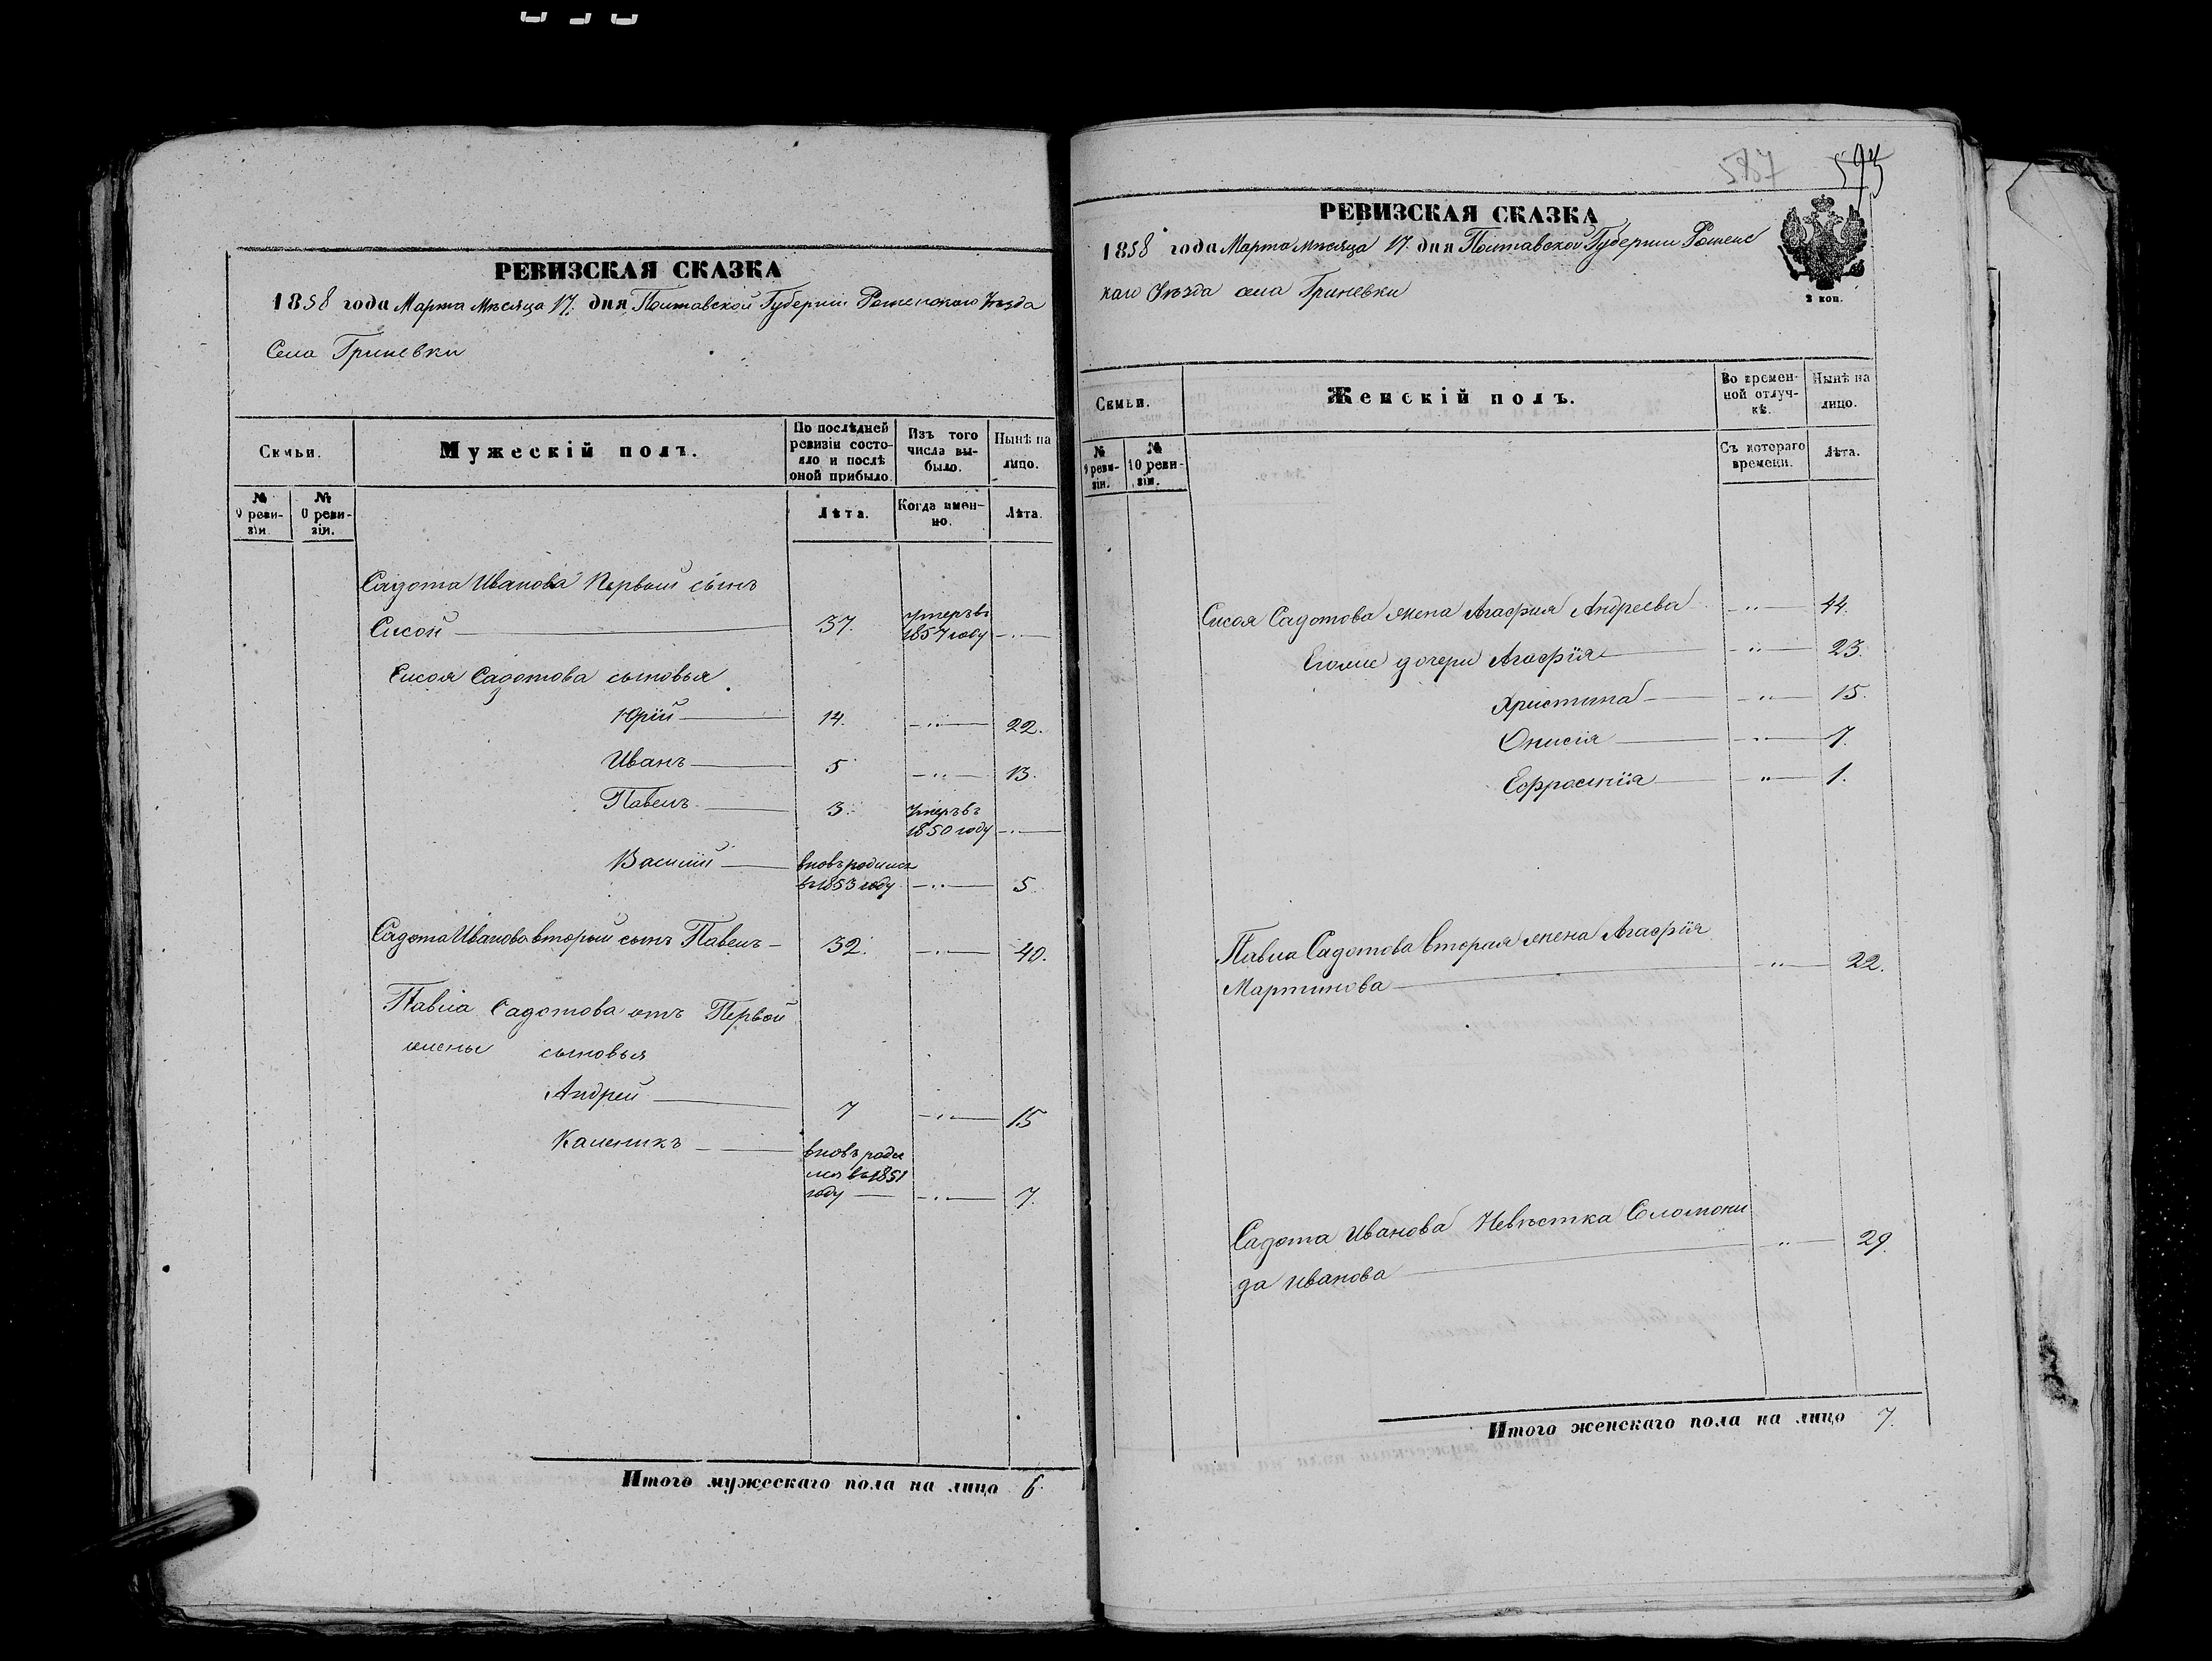 РЕВИЗСКАЯ СКАЗКА
1858 года Марта месяца 17. дня Полтавской Губерніи Роменскаго Уѣзда
Села Гриневки
Семьи.
Мужескій полъ.
По послѣдней ревизіи состояло и послѣ оной прибыло.
Изъ того числа выбыло.
Нынѣ на лицо.
№ 9 ревизіи.
№ 0 ревизіи.
Лѣта.
Когда именно.
Лѣта.
Садота Иванова Первый сынъ
Сисой 37. Умеръ въ 1857 году
Сисоя Садотова сыновья
Юрій 14. 22.
Иванъ 5 13.
Павелъ 3. Умеръ въ 1850 году
Василій вновь родился въ 1853 году 5.
Садота Иванова вторый сынъ Павелъ 32. 40.
Павла Садотова отъ Первой
жены сыновья
Андрей 7 15
Каленикъ вновь роди
лся въ 1851
году 7.
Итого мужескаго пола на лицо 6.
587 593
РЕВИЗСКАЯ СКАЗКА
1858 года Марта месяца 17. дня Полтавской Губерніи Роменс
каго Уѣзда села Гриневки
2 коп.
Семьи.
Женскій полъ.
Во временной отлучкѣ.
Нынѣ на лицо.
№ 9 ревизіи.
№ 10 ревизіи.
Съ котораго времени.
Лѣта.
Сисоя Садотова жена Агафия Андреева 44.
Егоже дочери Агафія 23.
Христина 15.
Онисія 7.
Ефросинія 1.
Павла Садотова вторая жена Агафія
Мартинова 22.
Садота Иванова Невѣстка Соломони
да Иванова 29.
Итого женскаго пола на лицо 7.